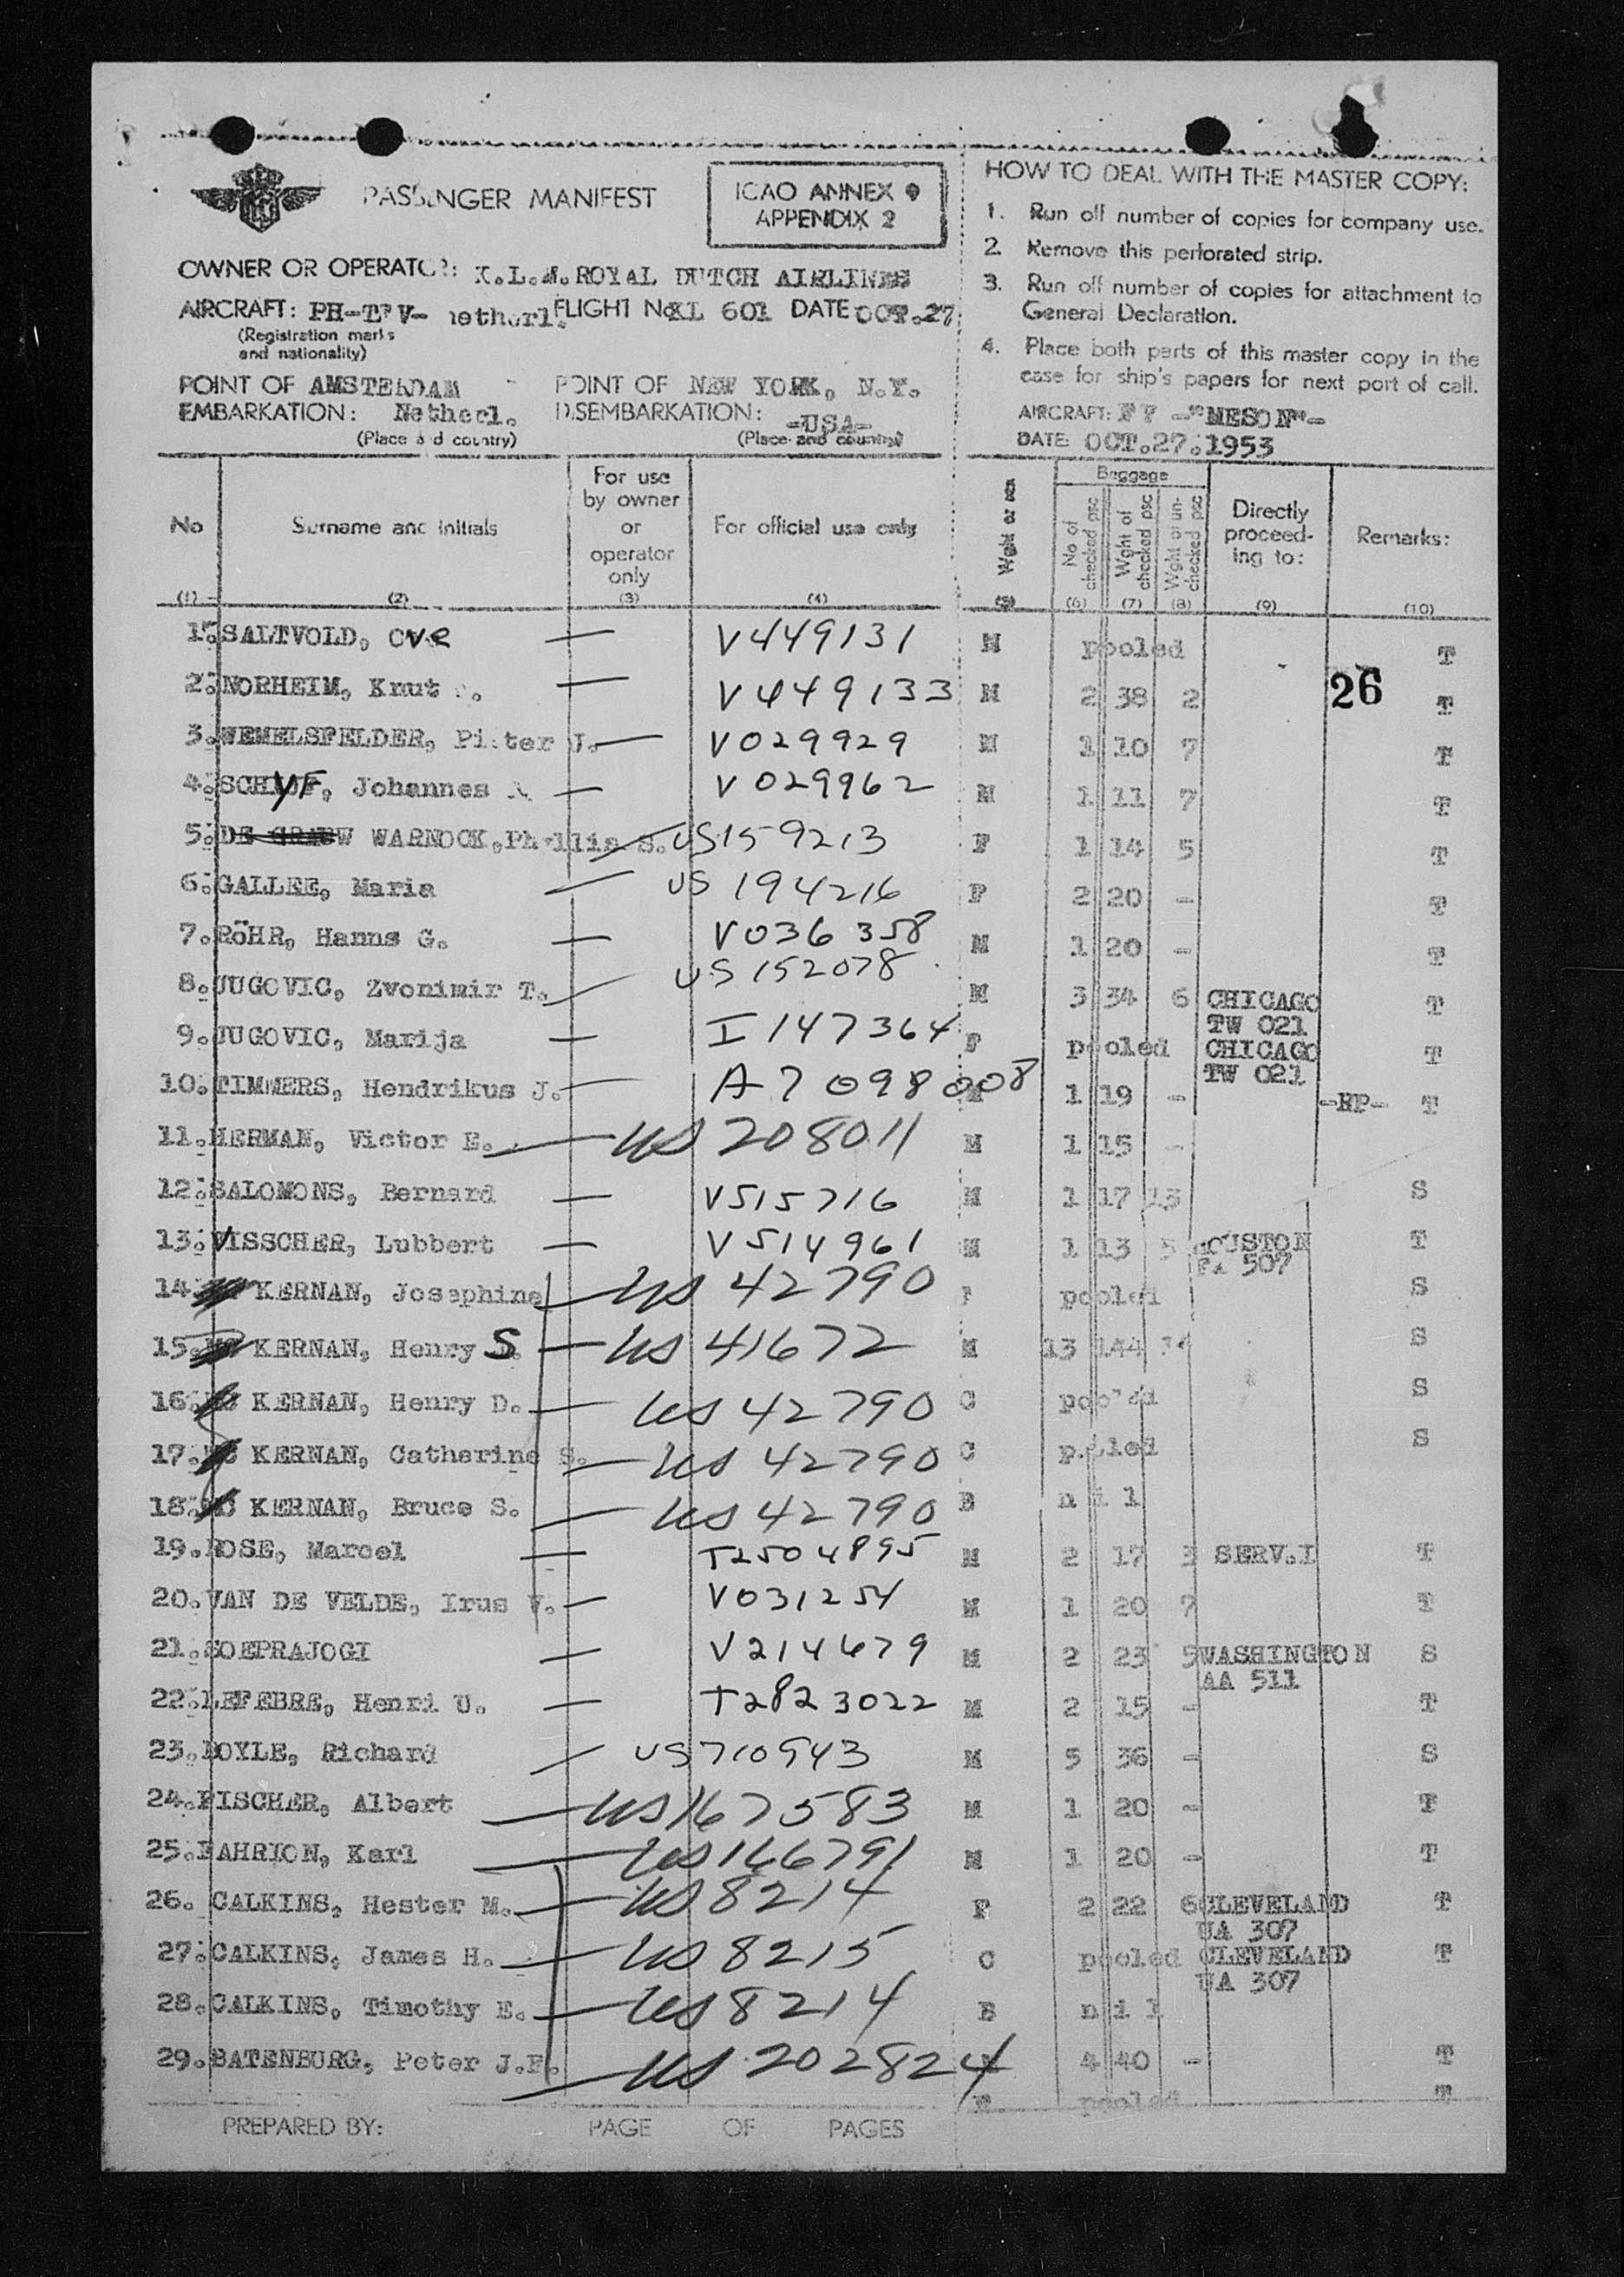 PASSENGER MANIFEST
ICAO ANNEX 9
APPENDIX 2
OWNER OR OPERATOR: K.L.M. ROYAL DUTCH AIRLINES
AIRCRAFT: PH-TPV- netherl. FLIGHT No KL 601 DATE OCT.27
(Registration marks
and nationality)
POINT OF AMSTERDAM POINT OF NEW YORK, N.Y.
EMBARKATION: Netherl. DISEMBARKATION: -USA-
(Place and country) (Place and country)
HOW TO DEAL WITH THE MASTER COPY:
1. Run off number of copies for company use.
2. Remove this perforated strip.
3. Run off number of copies for attachment to
General Declaration.
4. Place both parts of this master copy in the
case for ship's papers for next port of call.
AIRCRAFT:
DATE: OCT.27.1953
No Surname and initials For use by owner or operator only For official use only Baggage No of checked psc Wght of checked psc Wght of un-checked psc Directly proceed-ing to: Remarks:
(1) (2) (3) (4) (5) (6) (7) (8) (9) (10)
1. SALTVOLD, OVE — V449131 M pooled T
2. NORHEIM, Knut — V449133 M 2 38 2 26 T
3. WEMELSFELDER, Pieter J. — V029929 M 1 10 7 T
4. SCHYF, Johannes — V029962 M 1 11 7 T
5. WARNOCK, Phyllis S. US159213 F 1 14 5 T
6. GALLEE, Maria — US 194216 F 2 20 - T
7. RÖHR, Hanns G. — V036358 M 1 20 - T
8. JUGOVIC, Zvonimir T. US152078 M 3 34 6 CHICAGO T
TW 021
9. JUGOVIC, Marija — I 147364 F pooled CHICAGO T
TW 021
10. TIMMERS, Hendrikus J. — A7098008 1 19 - -RP- T
11. HERMAN, Victor E. — US 208011 M 1 15 -
12. SALOMONS, Bernard — V515716 M 1 17 13 S
13. VISSCHER, Lubbert — V514961 M 1 13 5 HOUSTON T
EA 507
14. KERNAN, Josephine — US 42790 F pooled S
15. KERNAN, Henry S — US 41672 M 13 144 S
16. KERNAN, Henry D. — US 42790 C pooled S
17. KERNAN, Catherine S. — US 42790 C pooled S
18. KERNAN, Bruce S. — US 42790 B nil
19. ROSE, Marcel — T2504895 M 2 17 3 SERV.I T
20. VAN DE VELDE, Irus V. — V031254 M 1 20 7 T
21. SOEPRAJOGI — V214679 M 2 23 5 WASHINGTON S
AA 511
22. LEFEBRE, Henri U. — T2823022 M 2 15 - T
23. DOYLE, Richard — US710943 M 5 36 - S
24. FISCHER, Albert — US167583 M 1 20 - T
25. FAHRION, Karl — US166791 M 1 20 - T
26. CALKINS, Hester M. — US8214 F 2 22 6 CLEVELAND T
UA 307
27. CALKINS, James H. — US8215 C pooled CLEVELAND T
UA 307
28. CALKINS, Timothy E. — US8214 B nil
29. BATENBURG, Peter J.F. — US 202824 4 40 - T
pooled T
PREPARED BY: PAGE OF PAGES